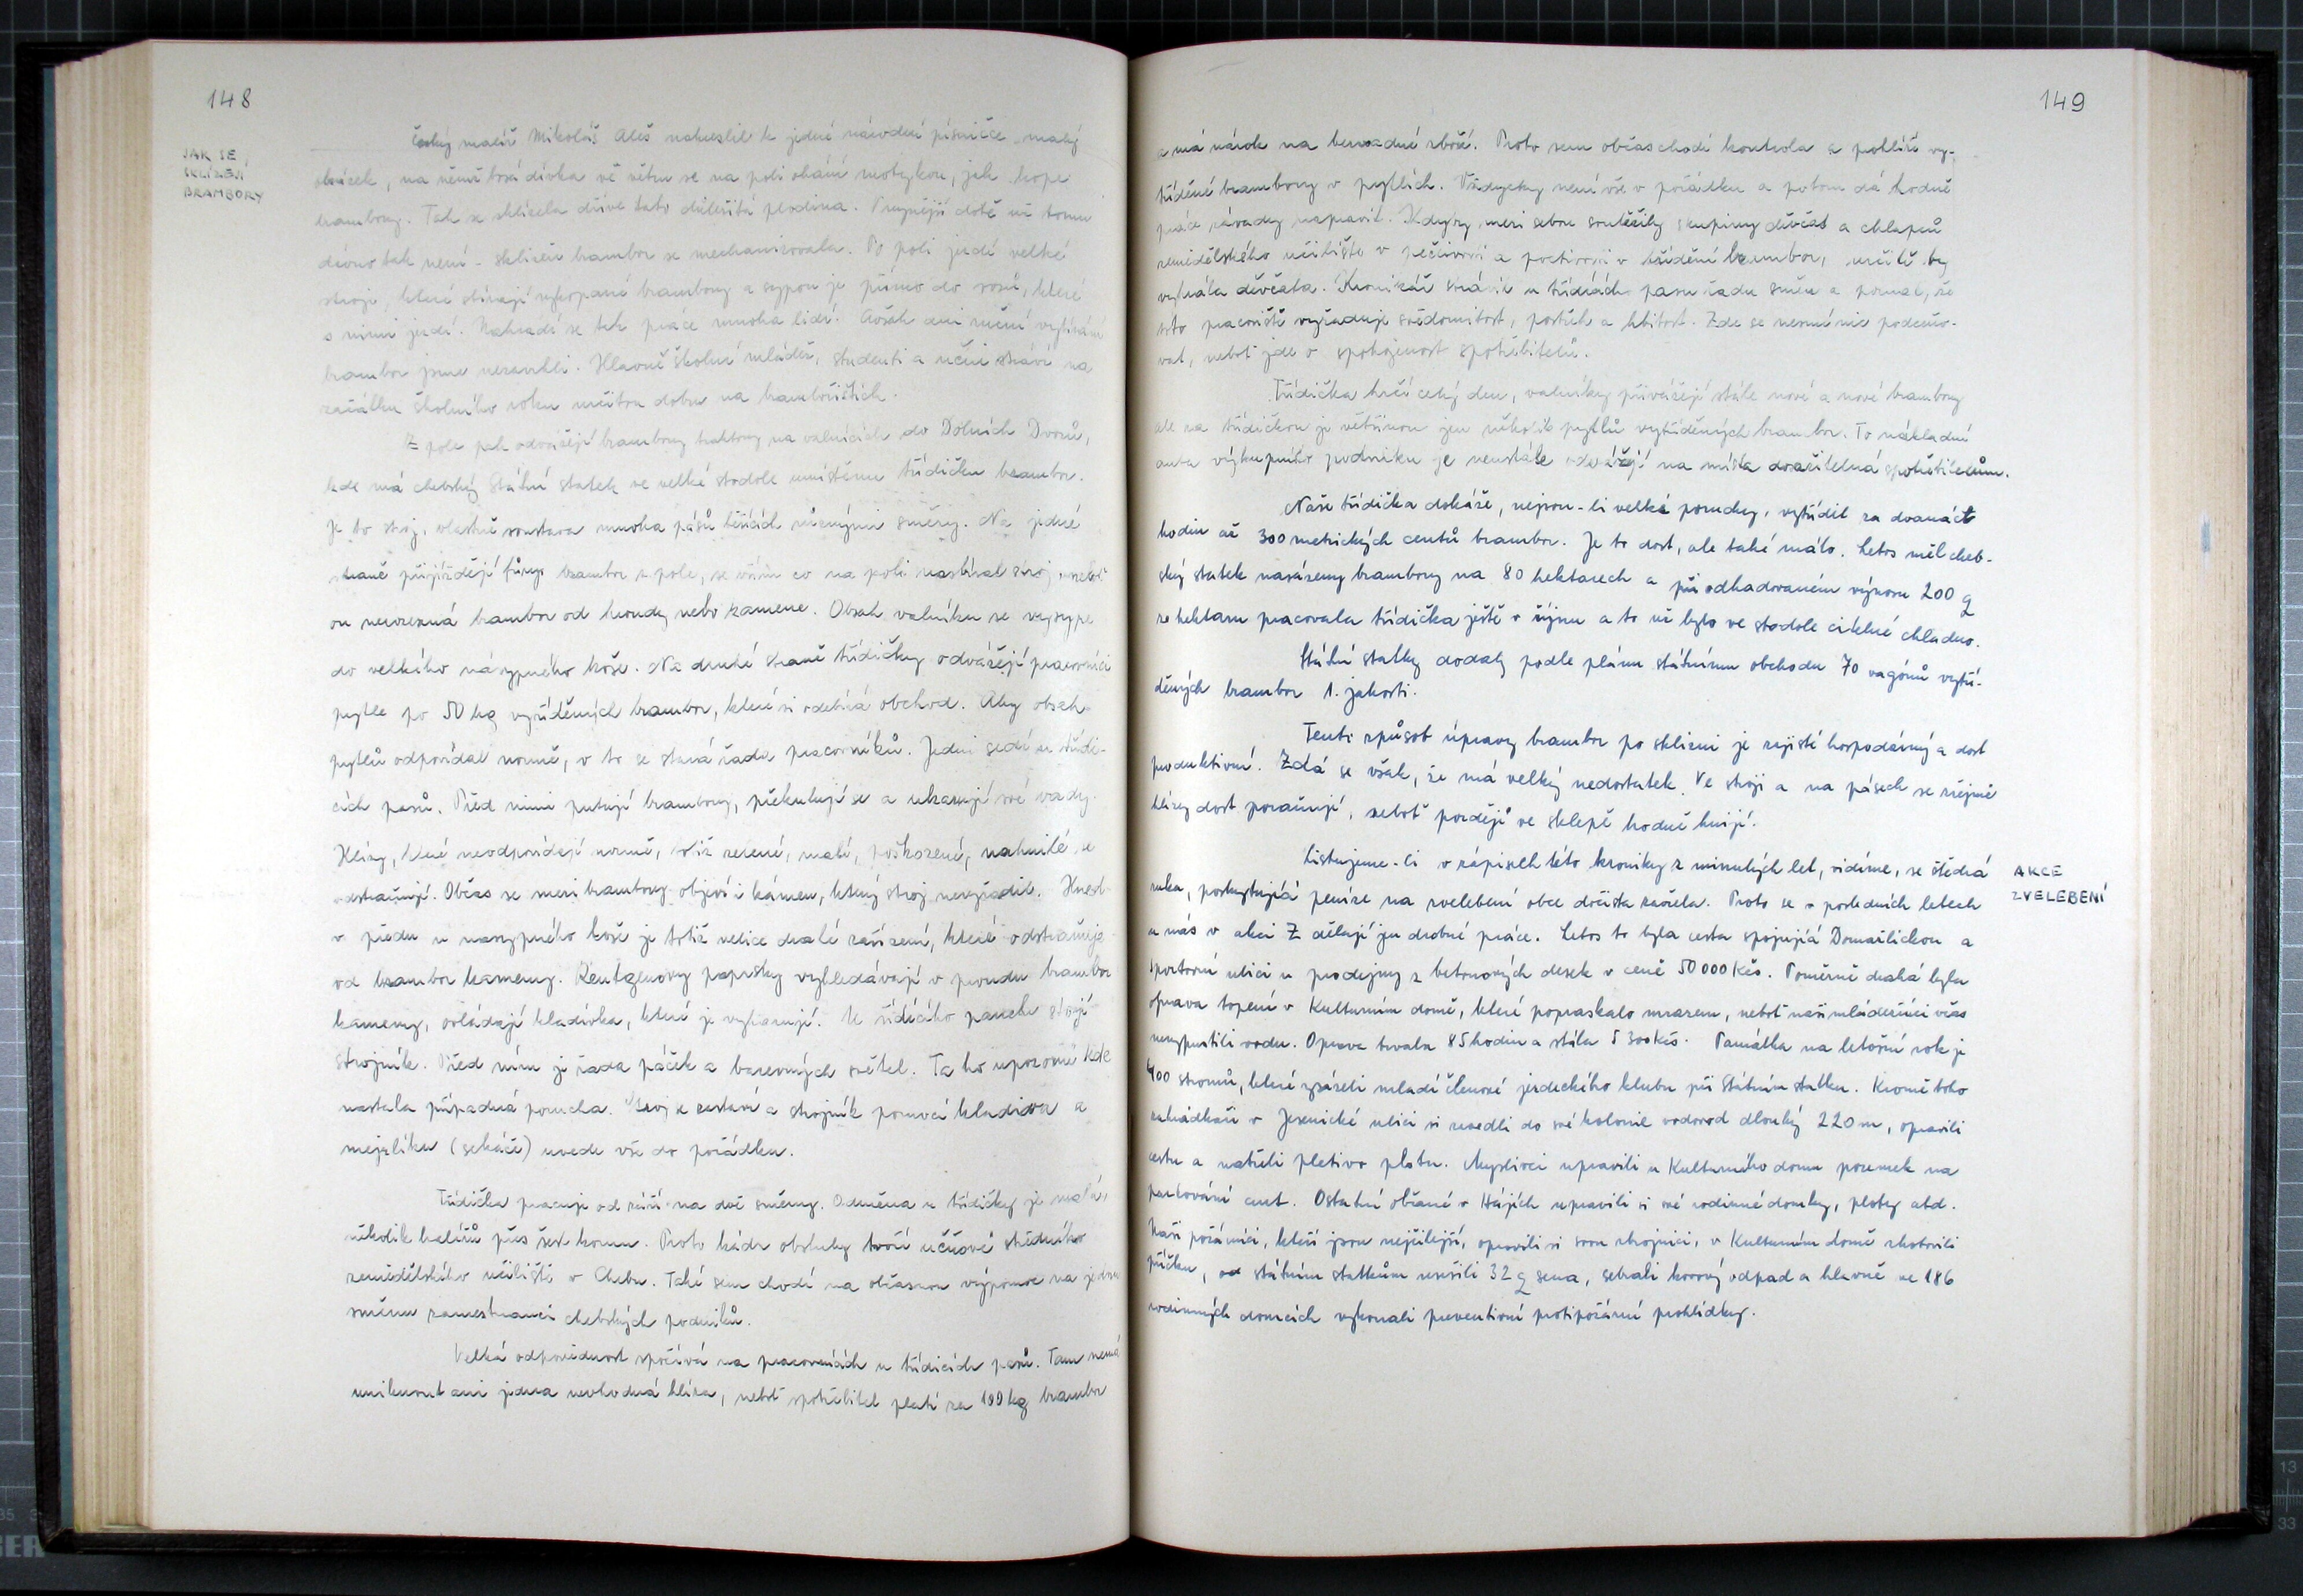 148
JAK SE
SKLÍZEJÍ
BRAMBORY
Český malíř Mikoláš Aleš nakreslil k jedné národní písničce malý
obrázek, na němž bosá dívka ve větru se na poli ohání motykou, jak kope
brambory. Tak se sklízela dříve tato důležitá plodina. V nynější době už tomu
dávno tak není - sklizeň brambor se mechanizovala. Po poli jezdí velké
stroje, které sbírají vykopané brambory a sypou je přímo do vozů, které
s nimi jezdí. Nahradí se tak práce mnoha lidí. Avšak ani ruční vybírání
brambor jsme nezavrhli. Hlavně školní mládež, studenti a učni stráví na
začátku školního roku určitou dobu na bramborištích.
Z pole pak odvážejí brambory traktory na valnících do Dolních Dvorů,
kde má chebský Státní statek ve velké stodole umístěnu třídičku brambor.
Je to stroj, vlastně soustava mnoha pásů běžících různými směry. Na jedné
straně přijíždějí fůry brambor z pole, se vším co na poli nasbíral stroj, neboť
on nerozezná brambor od hroudy nebo kamene. Obsah valníku se vysype
do velkého násypného koše. Na druhé straně třídičky odvážejí pracovníci
pytle po 50 kg vytříděných brambor, které si odebírá obchod. Aby obsah
pytlů odpovídal normě, o to se stará řada pracovníků. Jedni sedí u třídí-
cích pasů. Před nimi putují brambory, překulují se a ukazují své vady.
Hlízy, které neodpovídají normě, totiž zelené, malé, poškozené, nahnilé se
odstraňují. Občas se mezi brambory objeví i kámen, který stroj nevyřadil. Hned
v předu u nasypného koše je totiž velice drahé zařízení, které odstraňuje
od brambor kameny. Rentgenovy paprsky vyhledávají v proudu brambor
kameny, ovládají kladívka, které je vyhazují. U řídícího panelu stojí
strojník. Před ním je řada páček a barevných světel. Ta ho upozorní kde
nastala případná porucha. Stroj se zastaví a strojník pomocí kladiva a
mejzlíku (sekáče) uvede vše do pořádku.
Třídička pracuje od září na dvě směny. Odměna u třídičky je malá,
několik haléřů přes šest korun. Proto kádr obsluhy tvoří učňové středního
zemědělského učiliště v Chebu. Také sem chodí na občasnou výpomoc na jednu
směnu zamestnanci chebských podniků.
Velká odpovědnost spočívá na pracovnících u třídicích pasů. Tam nemá
uniknout ani jedna nevhodná hlíza, neboť spotřebitel platí za 100 kg brambor
149
a má nárok na bezvadné zboží. Proto sem občas chodí kontrola a prohlíží vy-
tříděné brambory v pytlích. Vždycky není vše v pořádku a potom dá hodně
práce závady napravit. Kdyby mezi sebou soutěžily skupiny děvčat a chlapců
zemědělského učiliště v pečlivosti a poctivosti v třídění brambor, určitě by
vyhrála děvčata. Kronikář strávil u třídících pasu řadu směn a poznal, že
toto pracoviště vyžaduje svědomitost, postřeh a hbitost. Zde se nesmí nic podceňo-
vat, neboť jde o spokojenost spotřebitelů.
Třídička hučí celý den, valníky přivážejí stále nové a nové brambory
ale na třídičkou je většinou jen několik pytlů vytříděných brambor. To nákladní
auta výkupního podniku je neustále odvážejí na místa dosažitelná spotřebitelům.
Naše třídička dokáže, nejsou-li velké poruchy, vytřídit za dvanáct
hodin až 300 metrických centů brambor. Je to dost, ale také málo. Letos měl cheb-
ský statek nasázeny brambory na 80 hektarech a při odhadovaném výnosu 200 q
ze hektaru pracovala třídička ještě v říjnu a to už bylo ve stodole citelně chladno.
Státní statky dodaly podle plánu státnímu obchodu 70 vagónů vytří-
děných brambor 1. jakosti.
Tento způsob úpravy brambor po sklizni je zajisté hospodárný a dost
produktivní. Zdá se však, že má velký nedostatek. Ve stroji a na pásech se zřejmě
hlízy dost poraňují, neboť později ve sklepě hodně hnijí.
AKCE
ZVELEBENÍ
Listujeme-li v zápisech této kroniky z minulých let, vidíme, že štědrá
ruka, poskytující peníze na zvelebení obce dočista zavřela. Proto se v posledních letech
u nás v akci Z dělají jen drobné práce. Letos to byla cesta spojující Domažlickou a
Sportovní ulici u prodejny z betonových desek v ceně 50 000 Kčs. Poměrně drahá byla
oprava topení v Kulturním domě, které popraskalo mrazem, neboť naši mládežníci včas
nevypustili vodu. Oprava trvala 85 hodin a stála 5 300 Kčs. Památka na letošní rok je
400 stromů, které vysázeli mladí členové jezdeckého klubu při Státním statku. Kromě toho
zahrádkáři v Jesenické ulici si zavedli do své kolonie vodovod dlouhý 220 m, opravili
cestu a natřeli pletivo plotu. Myslivci upravili u Kulturního domu pozemek na
parkování aut. Ostatní občané v Hájích upravili si své rodinné domky, ploty atd.
Naši požárníci, kteří jsou nejčilejší, opravili si svou zbrojnici, v Kulturním domě zhotovili
příčku, od státním statkům usušili 32 q sena, sebrali kovový odpad a hlavně ve 186
rodinných domcích vykonali preventivní protipožární prohlídky.